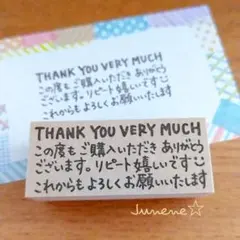 THANK YOU VERY MUCH
この度もご購入いただき ありがとう
ございます。リピート嬉しいです
これからも よろしくお願いいたします
THANK YOU VERY MUCH
この度もご購入いただき ありがとう
ございます。リピート嬉しいです
これからも よろしくお願いいたします
Junene☆